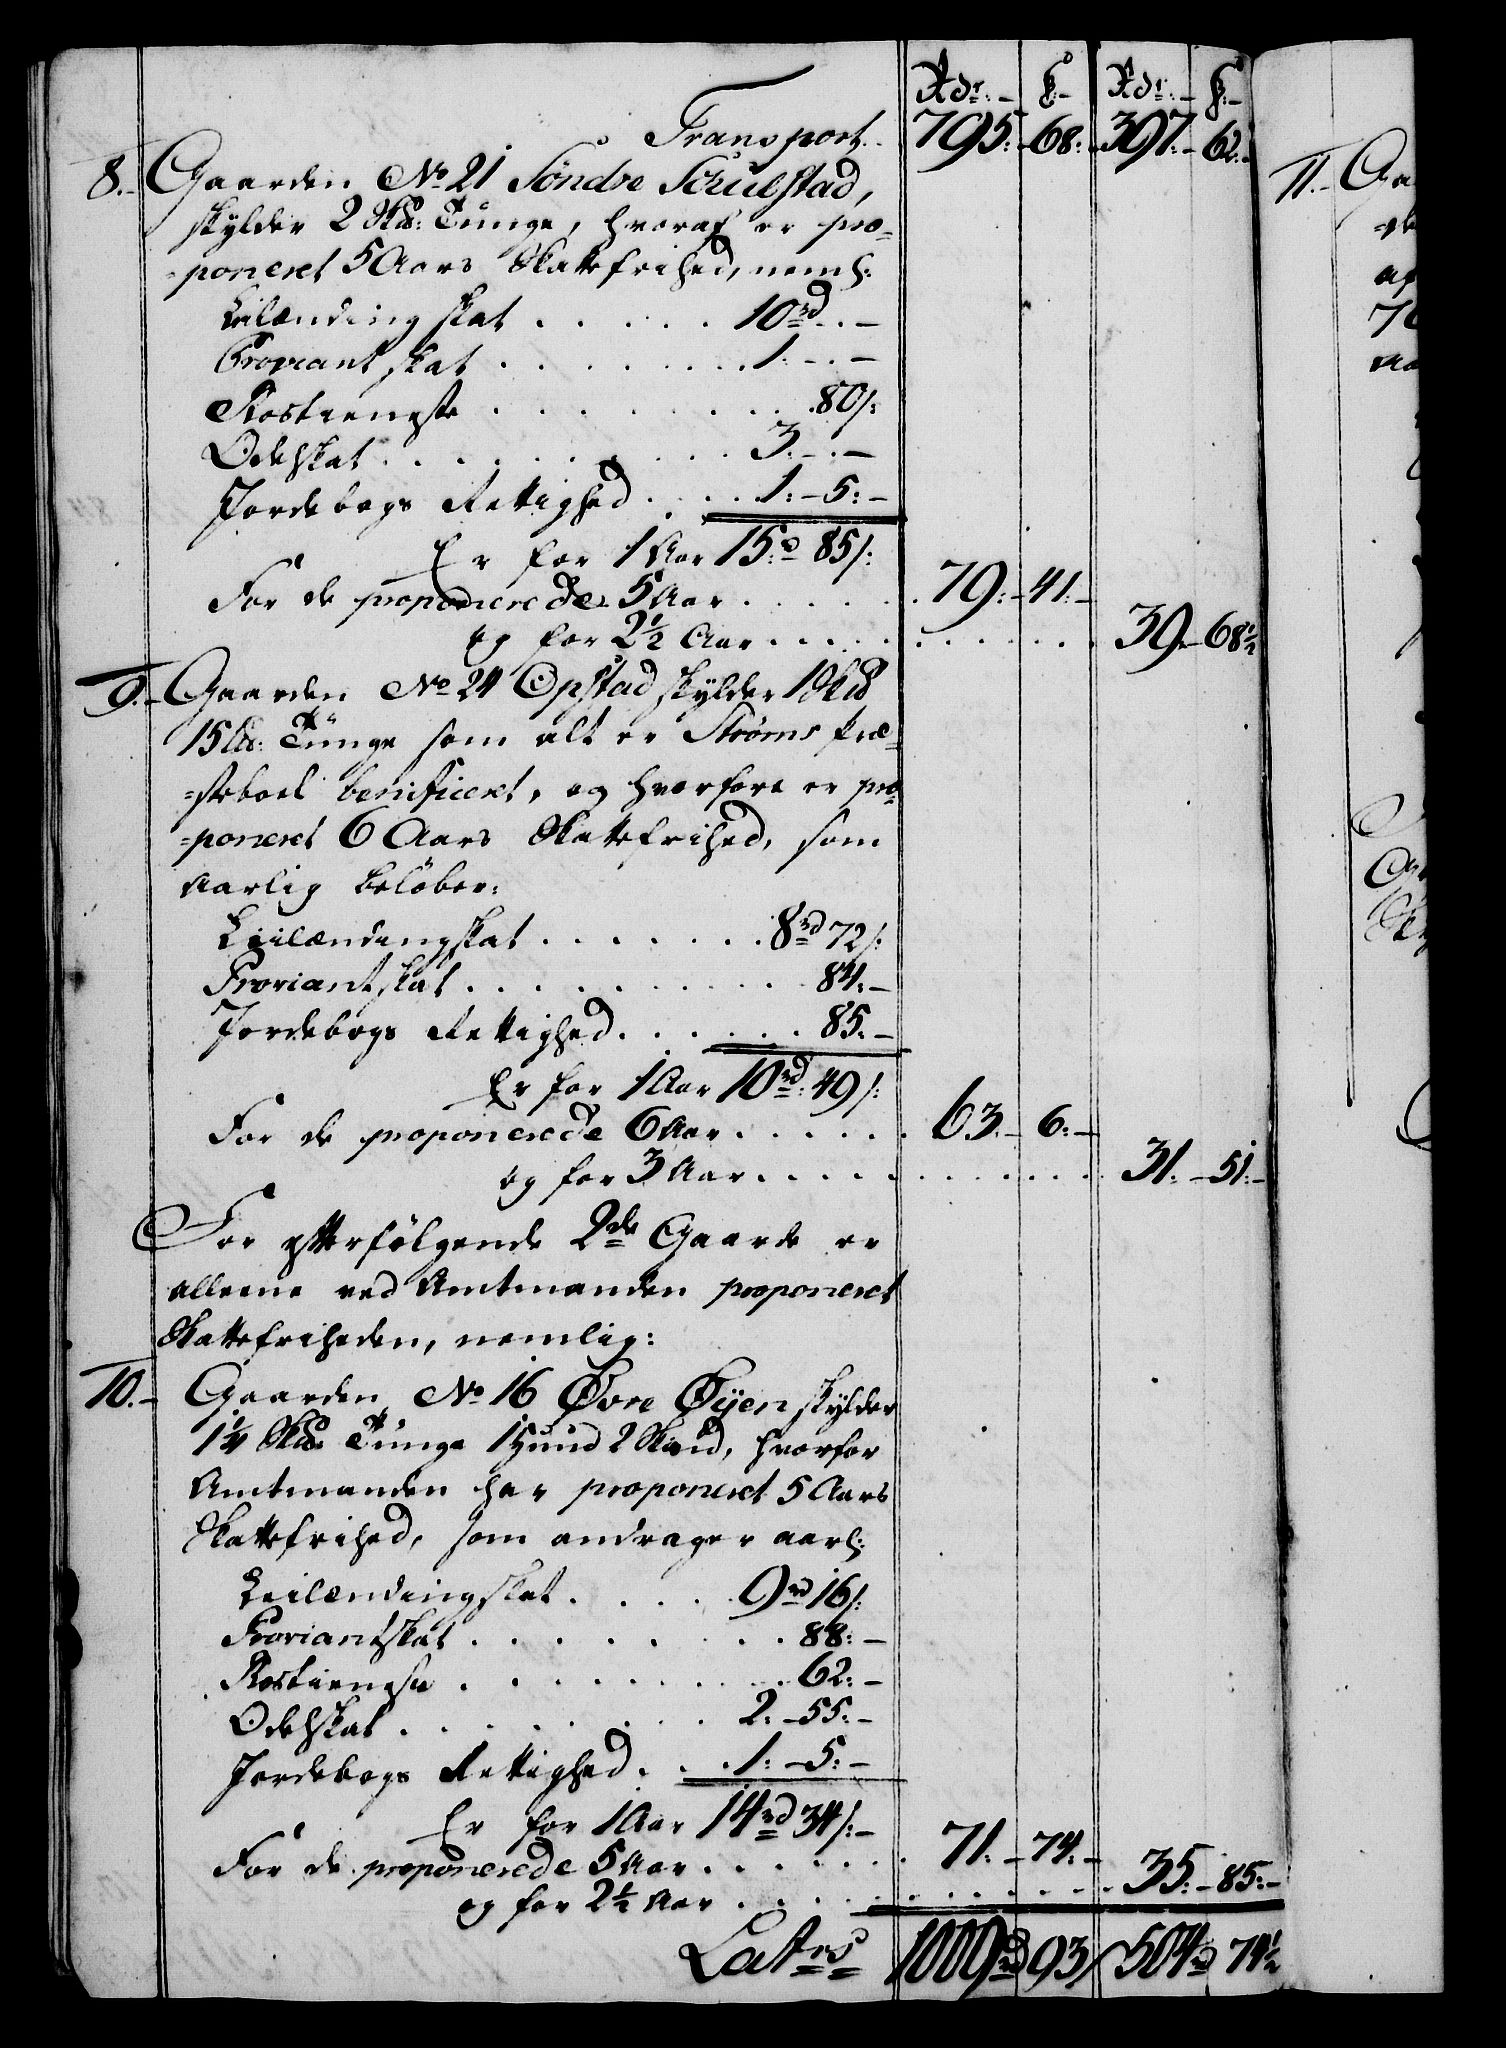 Rdr:- ß:- Rdr:- ß:-
Transport.. 795:- 68:- 397:- 62:-
8.- Gaarden No 21 Söndre Schulstad,
skylder 2 Skd: Tunge, hvoraf er pro-
-poneret 5 Aars Skattefrihed, neml:
Leilænding skat . . . . . 10rd - . -
Proviant skat . . . . . . . 1. - . -
Rostieneste . . . . . . . . . 80ß:
Odelskat . . . . . . . . . 3. - . -
Jordebogs Rettighed . . . . 1: - 5: -
Er for 1 Aar 15:d 85ß:
For de proponerede 5 Aar . . . . . . 79: - 41: -
og for 2½ Aar . . . . . . . . . . . . 39 - 68½
9.- Gaarden No 24 Opstad skylder 1 Skd
15 Ld: Tünge som alt er Strøms Præ-
-steboel benificeret, og hvorfore er pro-
-poneret 6 Aars Skattefrihed, som
Aarlig belöber:
Leilændingskat . . . . . . . 8rd 72ß:
Proviantskat . . . . . . . . . . 84: -
Jordebogs Rettighed . . . . . . 85. -
Er for 1 Aar 10rd: 49ß:
For de proponerede 6 Aar . . . . . . 63. - 6: -
og for 3 Aar . . . . . . . . . . . . 31: - 51: -
For efterfölgende 2de Gaarde er
alleene ved Amtmanden proponeret
Skattefriheden, nemlig:
10.- Gaarden No 16 Øvre Øÿen skylder
1¼ Skd: Tunge 1 Huud 2 Skind, hvorfor
Amtmanden har proponeret 5 Aars
Skattefrihed, som andrager aarl:
Leilændingskat . . . . . 9rd 16ß:
Proviantskat . . . . . . . . 88: -
Rostieneste . . . . . . . . . 62: -
Odelskat . . . . . . . . . 2: - 55: -
Jordebogs Rettighed . . . 1: - 5: -
Er for 1 Aar 14rd 34ß: -
For de proponerede 5 Aar . . . . . . 71: - 74: -
og for 2½ Aar . . . . . . . . . . . . 35: - 85: -
Latrs 1009rd 93ß 504rd 74½
11.-